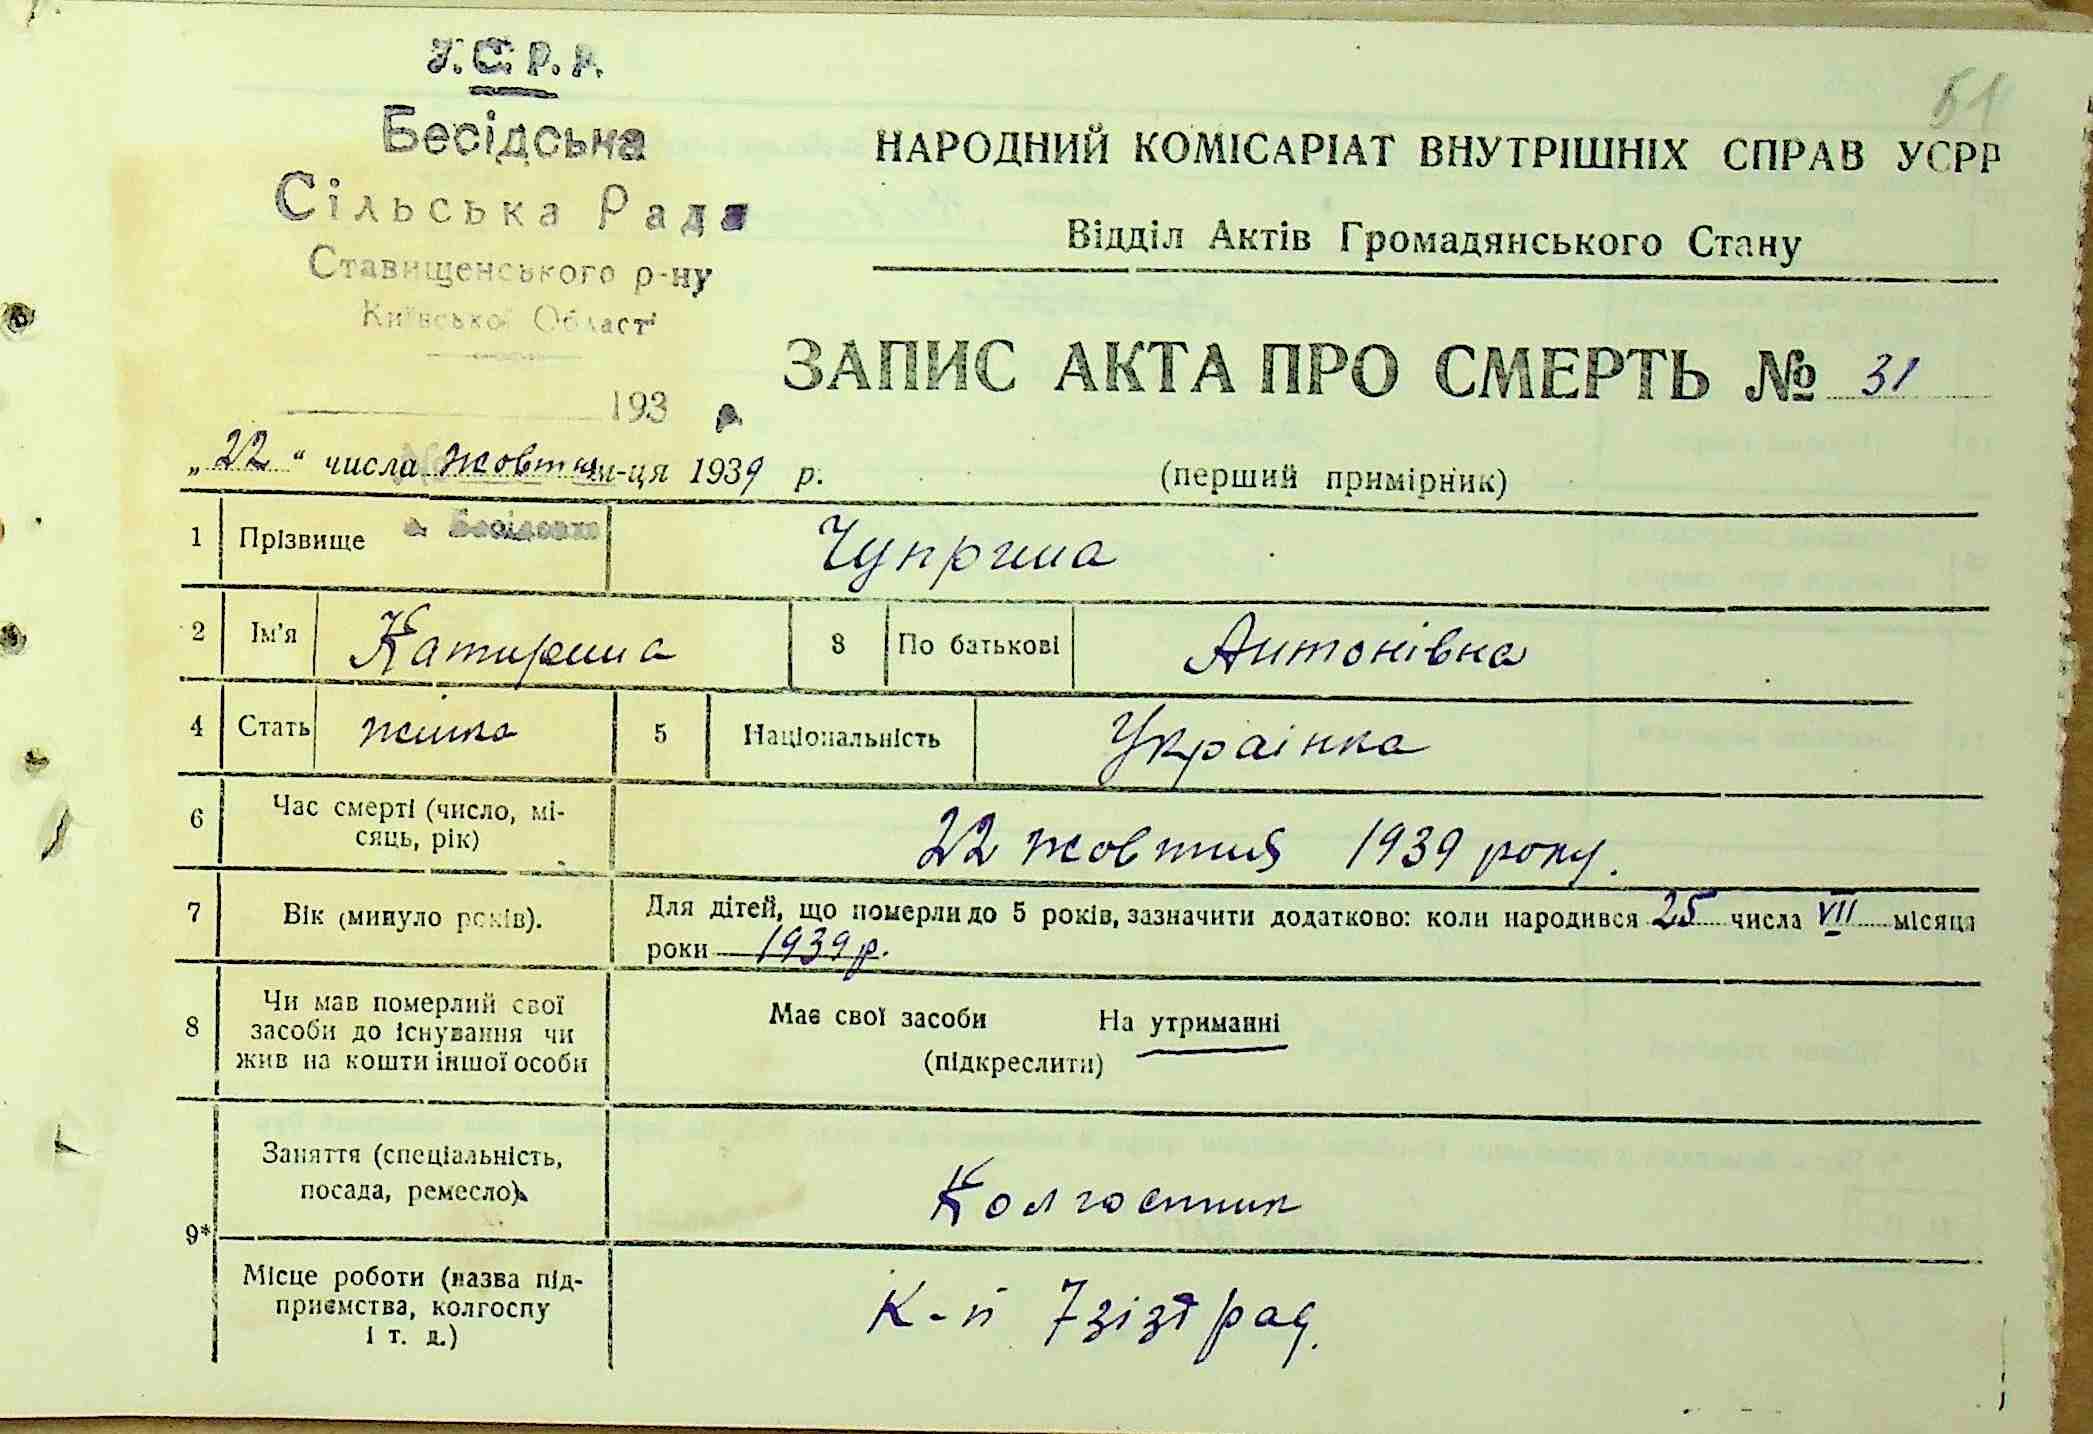 У.С.Р.Р.
Бесідська
Сільська Рада
Ставищенського р-ну
Київської Області
193
51
НАРОДНИЙ КОМІСАРІАТ ВНУТРІШНІХ СПРАВ УСРР
Відділ Актів Громадянського Стану
ЗАПИС АКТА ПРО СМЕРТЬ № 31
„22“ числа жовтня м-ця 1939 р.
(перший примірник)
1 Прізвище Чуприна
2 Ім'я Катирина 3 По батькові Антонівна
4 Стать жінка 5 Національність Украінка
6 Час смерті (число, мі-
сяць, рік) 22 жовтня 1939 року.
7 Вік (минуло років). Для дітей, що померли до 5 років, зазначити додатково: коли народився 25 числа VII місяця
роки 1939 р.
8 Чи мав померлий свої
засоби до існування чи
жив на кошти іншої особи
Має свої засоби На утриманні
(підкреслити)
9* Заняття (спеціальність,
посада, ремесло) Колгоспник
Місце роботи (назва під-
приємства, колгоспу
і т. д.) К-п 7 зізд рад.